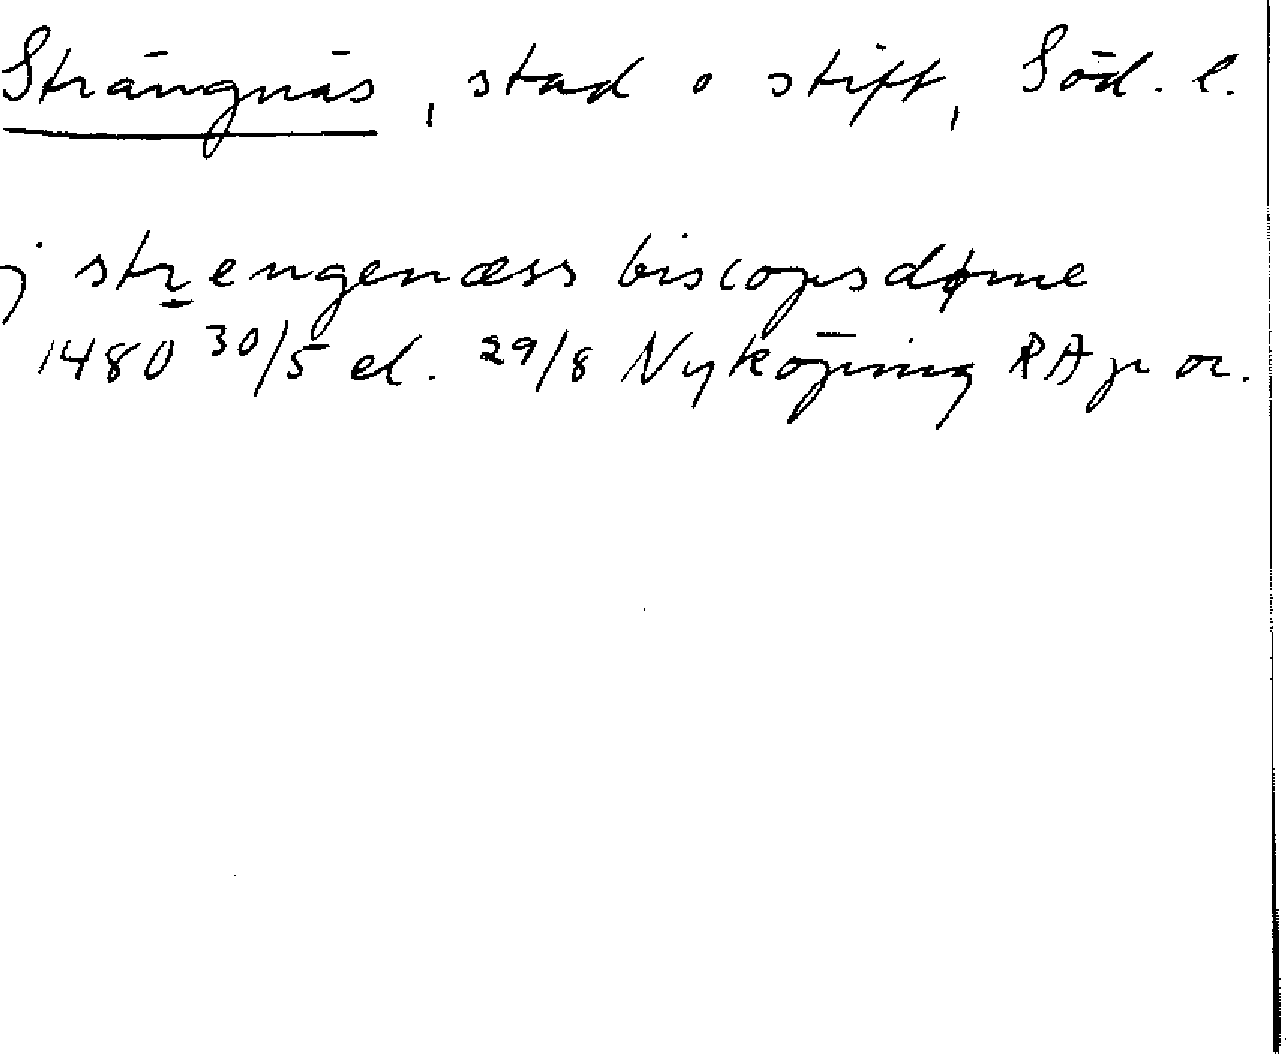 Strängnäs, stad o stift, Söd. l.
j strengenæss biscopsdøme
1480 30/5 el. 29/8 Nyköping RAp or.